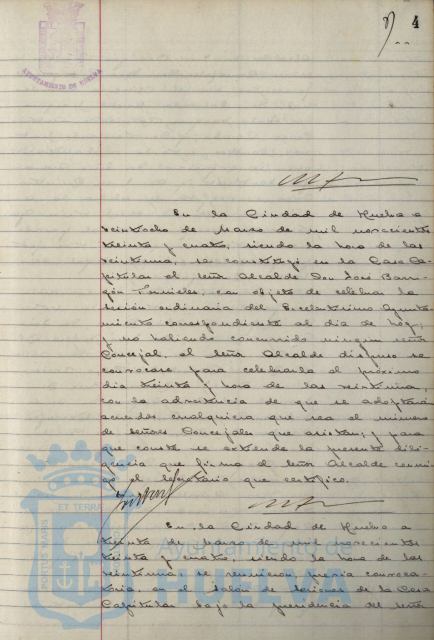 4
AYUNTAMIENTO DE HUELVA
En la Ciudad de Huelva a
veintiocho de Marzo de mil novecientos
treinta y cuatro, siendo la hora de las
veintiuna, se constituyó en la Casa Ca-
pitular el señor Alcalde Don José Barri-
gón, con objeto de celebrar la
sesión ordinaria del Excelentísimo Ayunta-
miento correspondiente al día de hoy;
y no habiendo concurrido ningún señor
Concejal, el señor Alcalde dispuso se
convocase para celebrarla el próximo
día treinta y hora de las veintiuna,
con la advertencia de que se adoptarán
acuerdos cualquiera que sea el número
de señores Concejales que asistan; y para
que conste se extiende la presente dili-
gencia que firma el señor Alcalde conmi-
go el Secretario que certifico.
En la Ciudad de Huelva a
treinta de Marzo de mil novecientos
treinta y cuatro, siendo la hora de las
veintiuna, se reunieron, previa convoca-
toria, en el Salón de Sesiones de la Casa
Capitular bajo la presidencia del señor
PORTUS MARIS ET TERRAE
Ayuntamiento de
HUELVA